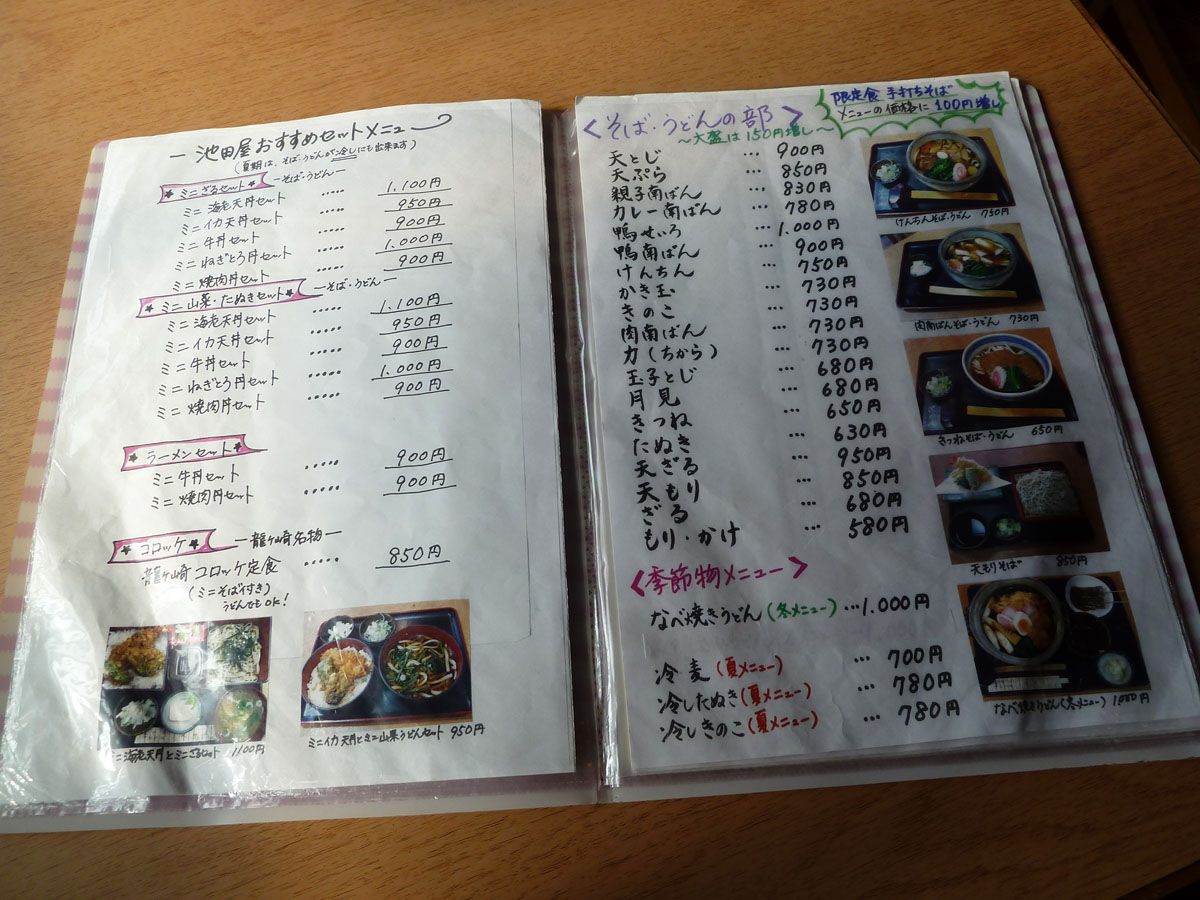 一 池田屋おすすめセットメニュー
(夏期は、そば・うどんが冷しにも出来ます)
★ミニざるセット★ ーそば・うどんー
ミニ海老天丼セット ‥‥‥ 1.100円
ミニイカ天丼セット ‥‥‥ 950円
ミニ牛丼セット ‥‥‥ 900円
ミニねぎとろ丼セット ‥‥‥ 1.000円
ミニ焼肉丼セット ‥‥‥ 900円
★ミニ山菜・たぬきセット★ ーそば・うどんー
ミニ海老天丼セット ‥‥‥ 1.100円
ミニイカ天丼セット ‥‥‥ 950円
ミニ牛丼セット ‥‥‥ 900円
ミニねぎとろ丼セット ‥‥‥ 1.000円
ミニ焼肉丼セット ‥‥‥ 900円
★ラーメンセット★
ミニ牛丼セット ‥‥‥ 900円
ミニ焼肉丼セット ‥‥‥ 900円
★コロッケ★ ー龍ヶ崎名物ー
龍ヶ崎コロッケ定食 ‥‥‥ 850円
(ミニそば付き)
うどんでもOK!
ミニ海老天丼とミニざるセット 1100円
ミニイカ天丼とミニ山菜うどんセット 950円
<そば・うどんの部>
〜大盛は150円増し〜
限定食 手打ちそば
メニューの価格に100円増し
天とじ … 900円
天ぷら … 850円
親子南ばん … 830円
カレー南ばん … 780円
鴨せいろ … 1.000円
鴨南ばん … 900円
けんちん … 750円
かき玉 … 730円
きのこ … 730円
肉南ばん … 730円
力(ちから) … 730円
玉子とじ … 680円
月見 … 680円
きつね … 650円
たぬき … 630円
天ざる … 950円
天もり … 850円
ざる … 680円
もり・かけ … 580円
<季節物メニュー>
なべ焼きうどん(冬メニュー) …1.000円
冷麦(夏メニュー) … 700円
冷したぬき(夏メニュー) … 780円
冷しきのこ(夏メニュー) … 780円
けんちんそば・うどん 750円
肉南ばんそば・うどん 730円
きつねそば・うどん 650円
天もりそば 850円
なべ焼きうどん(冬メニュー) 1000円